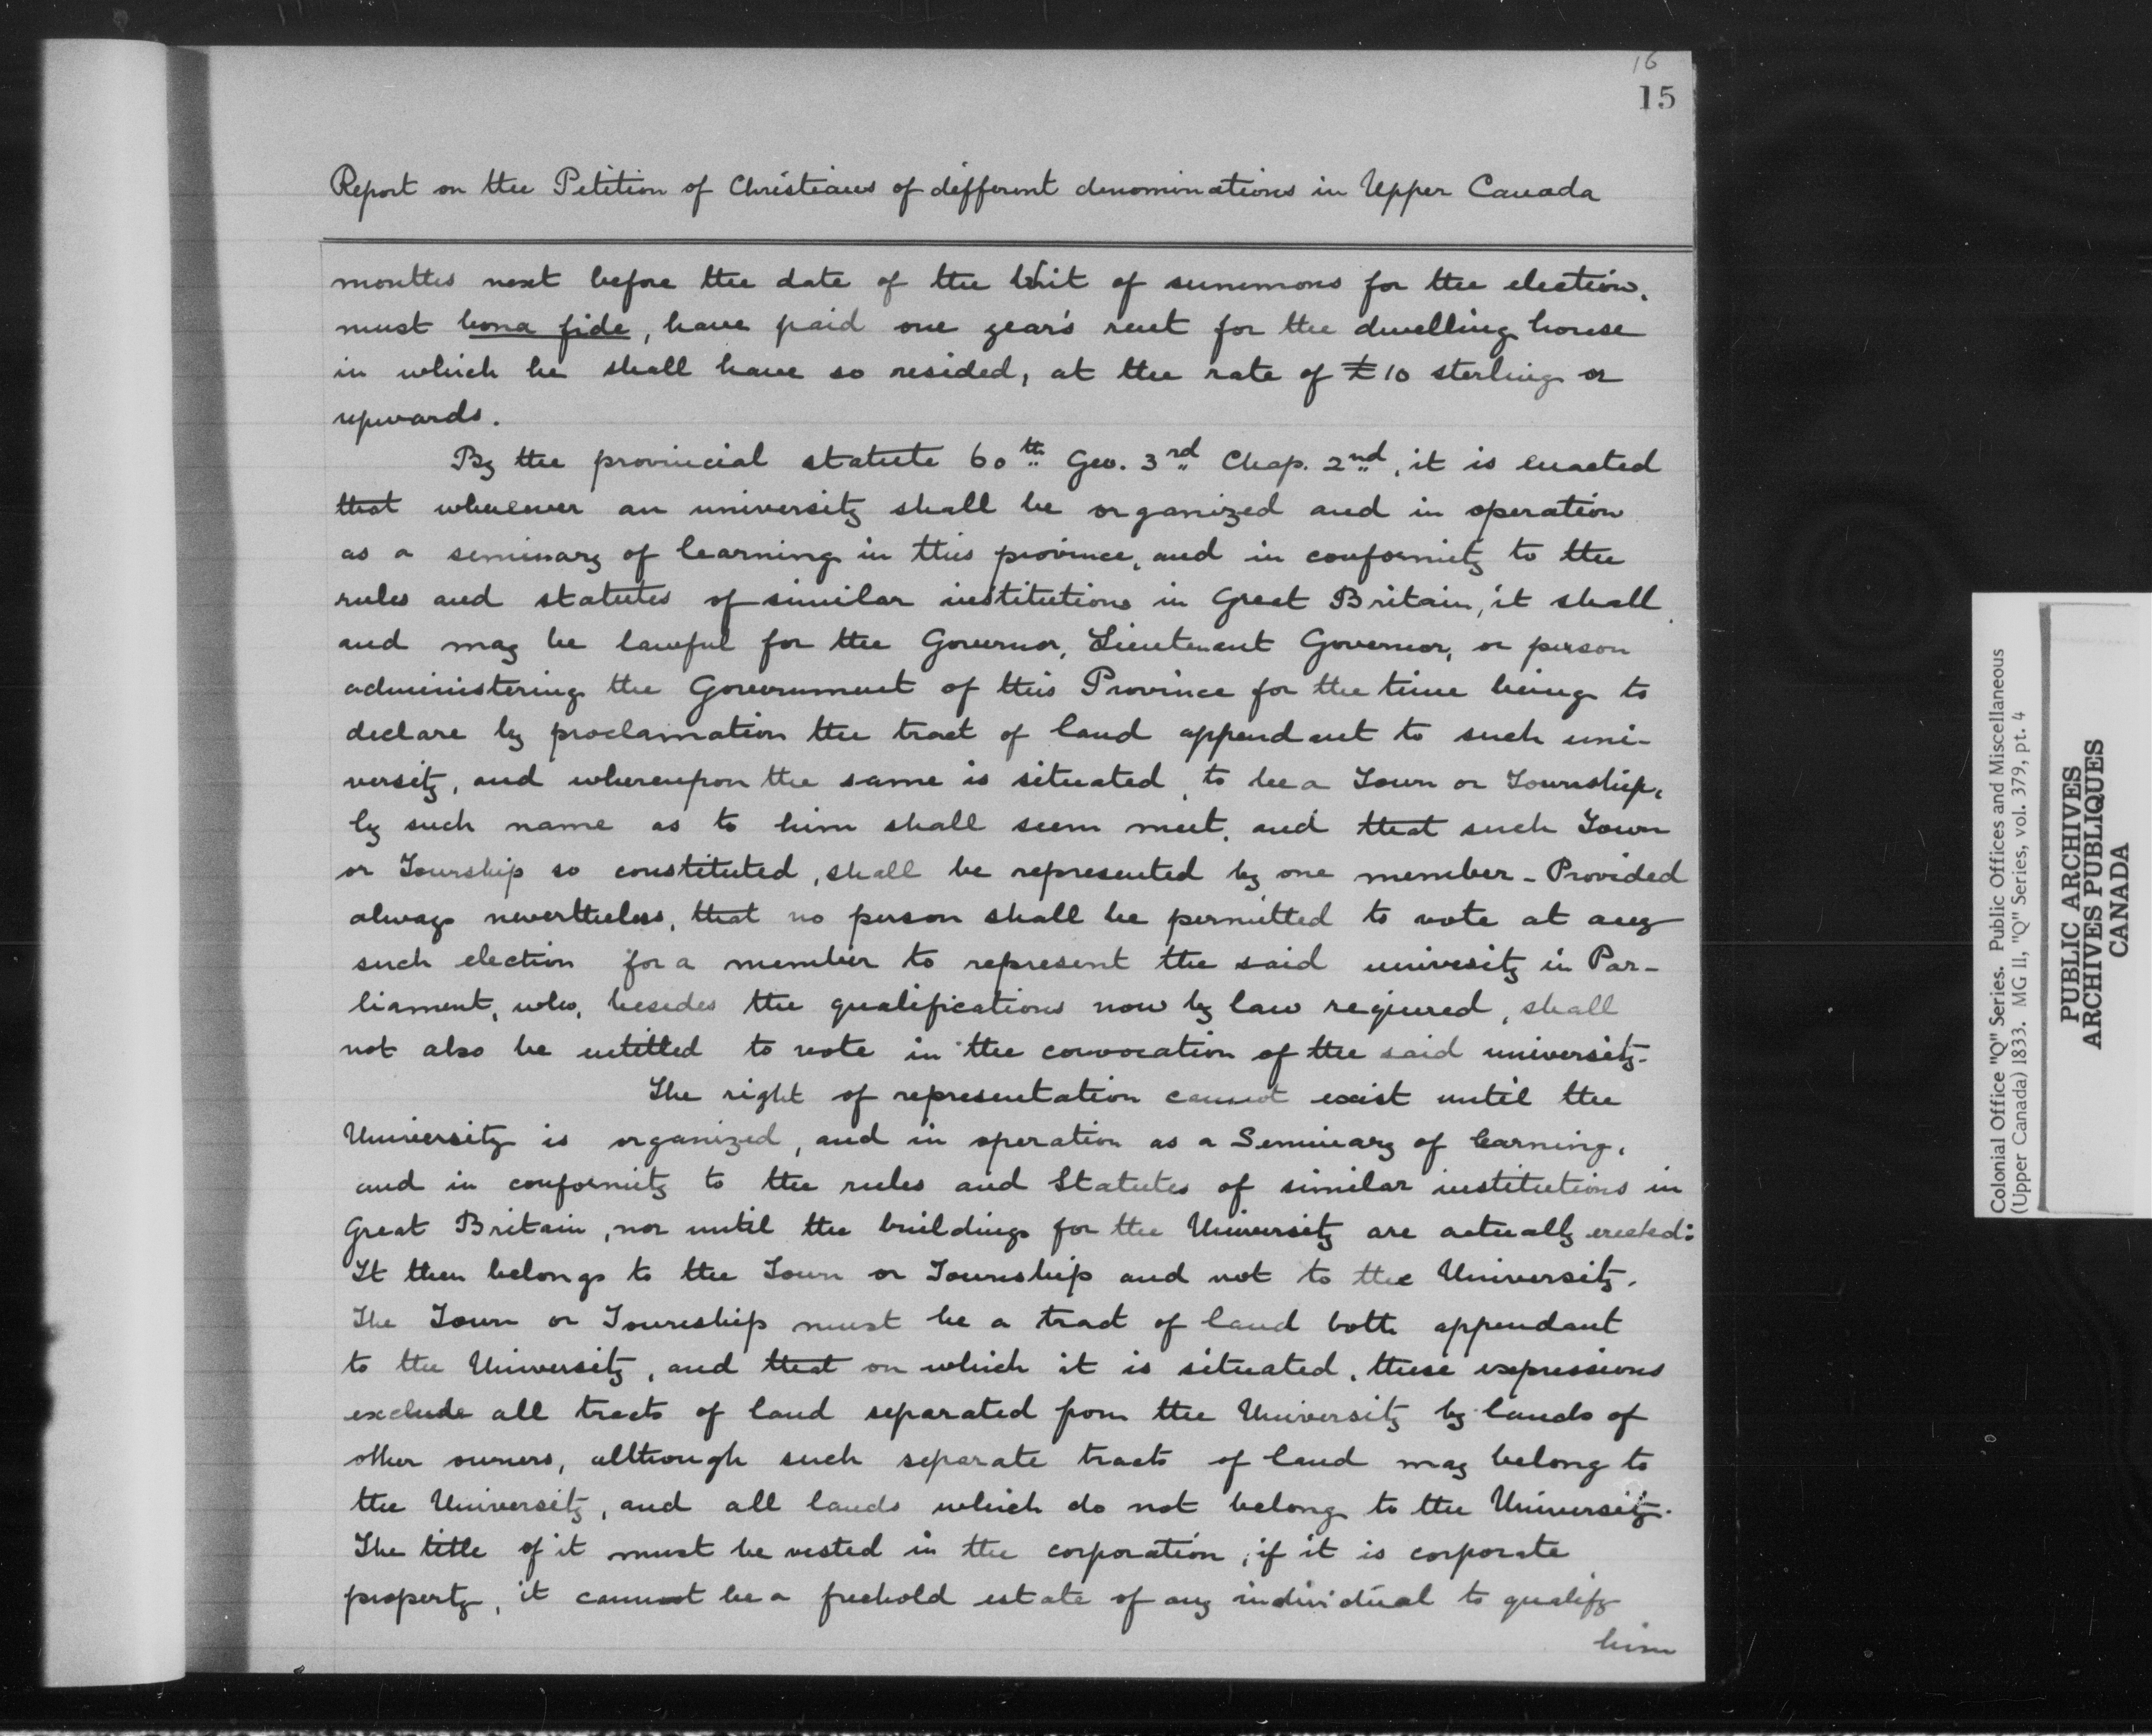 16
15
Report on the Petition of Christians of different denominations in Upper Canada
months next before the date of the Writ of summons for the election,
must bona fide, have paid one year's rent for the dwelling house
in which he shall have so resided, at the rate of £10 sterling or
upwards.
By the provincial statute 60th Geo. 3rd Chap. 2nd, it is enacted
that whenever an university shall be organized and in operation
as a seminary of learning in this province, and in conformity to the
rules and statutes of similar institutions in Great Britain, it shall
and may be lawful for the Governor, Lieutenant Governor, or person
administering the Government of this Province for the time being to
declare by proclamation the tract of land appendant to such uni-
versity, and whereupon the same is situated, to be a Town or Township,
by such name as to him shall seem meet, and that such Town
or Township so constituted, shall be represented by one member - Provided
always nevertheless, that no person shall be permitted to vote at any
such election for a member to represent the said univesity in Par-
liament, who, besides the qualifications now by law required, shall
not also be entitled to vote in the convocation of the said university.
The right of representation cannot exist until the
University is organized, and in operation as a Seminary of learning,
and in conformity to the rules and Statutes of similar institutions in
Great Britain, nor until the buildings for the University are actually erected:
It then belongs to the Town or Township and not to the University.
The Town or Township must be a tract of land both appendant
to the University, and that on which it is situated, these expressions
exclude all tracts of land separated from the University by lands of
other owners, although such separate tracts of land may belong to
the University, and all lands which do not belong to the University.
The title of it must be vested in the corporation, if it is corporate
property, it cannot be a freehold estate of any individual to qualify
him
Colonial Office "Q" Series. Public Offices and Miscellaneous
(Upper Canada) 1833. MG 11, "Q" Series, vol. 379, pt. 4
PUBLIC ARCHIVES
ARCHIVES PUBLIQUES
CANADA